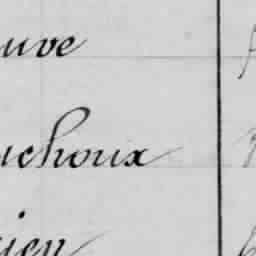 uve
uchoux
ien